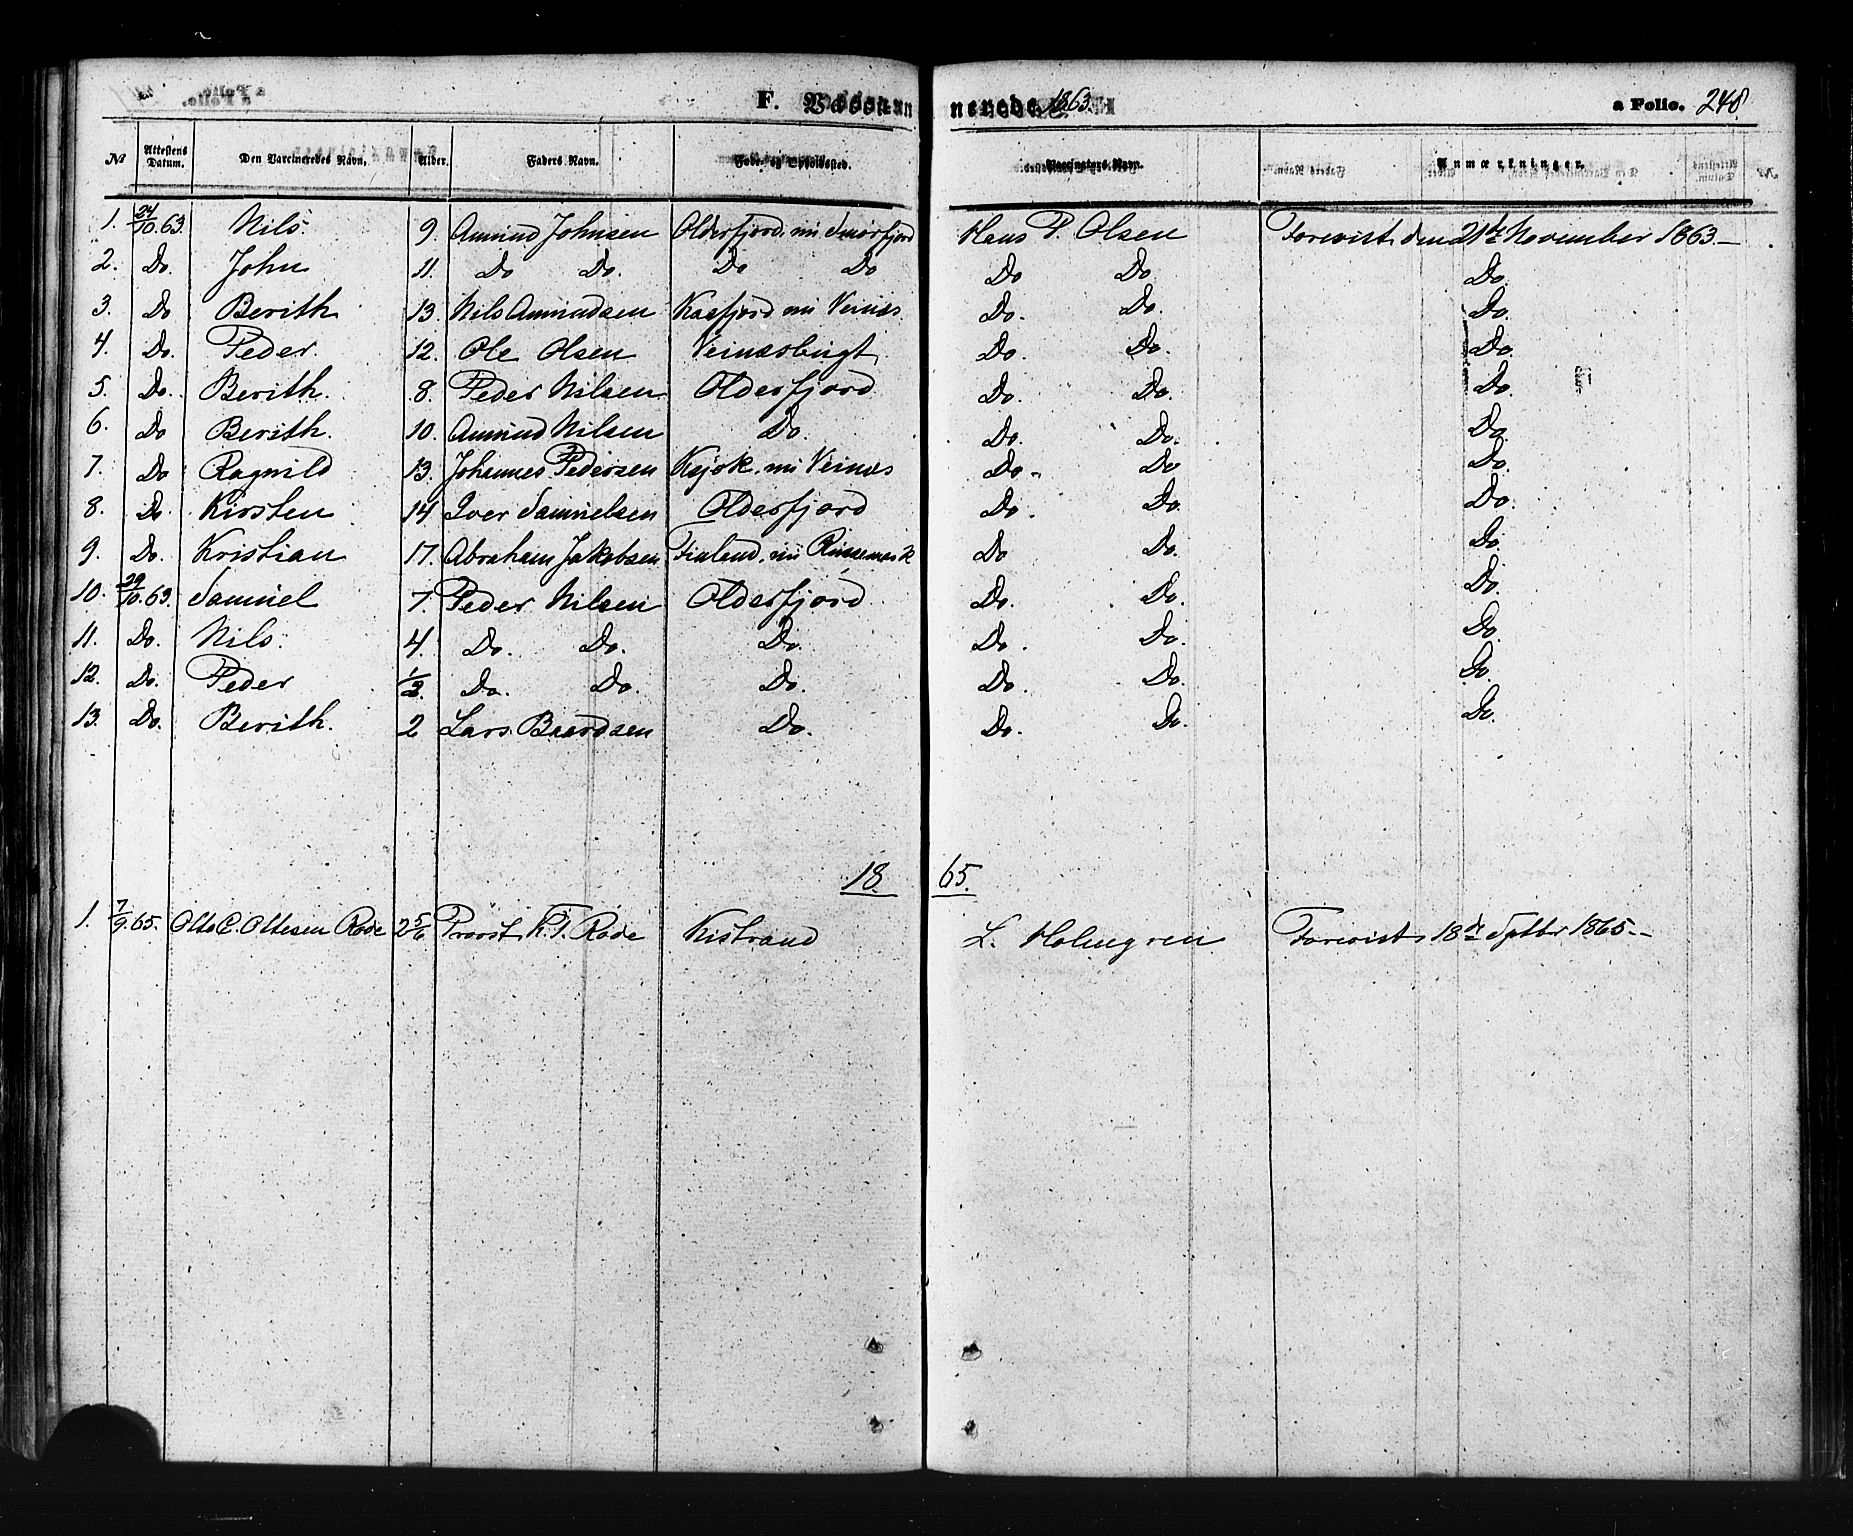 F. Vaccinerede 1863. a Folio. 248.
№ Attestens Datum. Den Vaccineredes Navn. Alder. Faders Navn. Føde- og Opholdssted. Vaccinators Navn. Anmærkninger.
1. 24/10.63. Nils. 9. Amund Johnsen Olderfjord, nu Smørfjord Hans P. Olsen Forevist den 21de November 1863.
2. Do. John 11. Do Do. Do Do Do Do. Do.
3. Do Berith 13. Nils Amundsen Kaafjord nu Veinæs. Do. Do. Do.
4. Do. Peder. 12. Ole Olsen Veinæsbugt Do. Do. Do.
5. Do. Berith. 8. Peder Nilsen Olderfjord Do. Do. Do.
6. Do Berith. 10. Amund Nilsen Do. Do. Do. Do.
7. Do Ragnild 13. Johannes Pedersen nu Veinæs Do. Do Do.
8. Do. Kirsten 14 Iver Samuelsen Olderfjord Do. Do. Do.
9. Do. Kristian 17. Abraham Jakobsen Finland, nu Do Do. Do.
10. 29/10.63. Samuel 7. Peder Nilsen Olderfjord Do. Do. Do.
11. Do. Nils. 4. Do. Do. Do. Do. Do. Do.
12. Do. Peder 1/2. Do. Do. Do. Do. Do. Do.
13. Do. Berith. 2 Lars Baardsen Do. Do. Do. Do.
1865.
1. 7/9 65. Otto C. Ottesen Røde 2 5/6 Provst K. F. Røde Kistrand L. Holmgren Forevist 18de Septbr 1865.